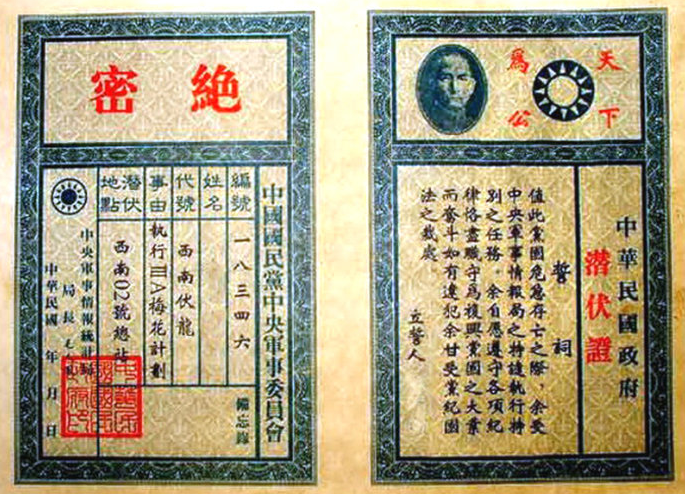 天下
爲公
中華民國政府
潛伏證
誓詞
值此黨國危急存亡之際，余受
中央軍事情報局之特遣執行特
別之任務。余自愿遵守各項紀
律恪盡職守為復興黨國之大業
而奮斗如有違犯余甘受黨紀國
法之裁處。
立誓人
絕密
中國國民黨中央軍事委員會
備忘錄
編號 一八三四六
姓名
代號 西南伏龍
事由 執行ⅢA梅花計劃
潛伏地點 西南02號總站
中央軍事情報統計局
局長
中華民國 年 月 日